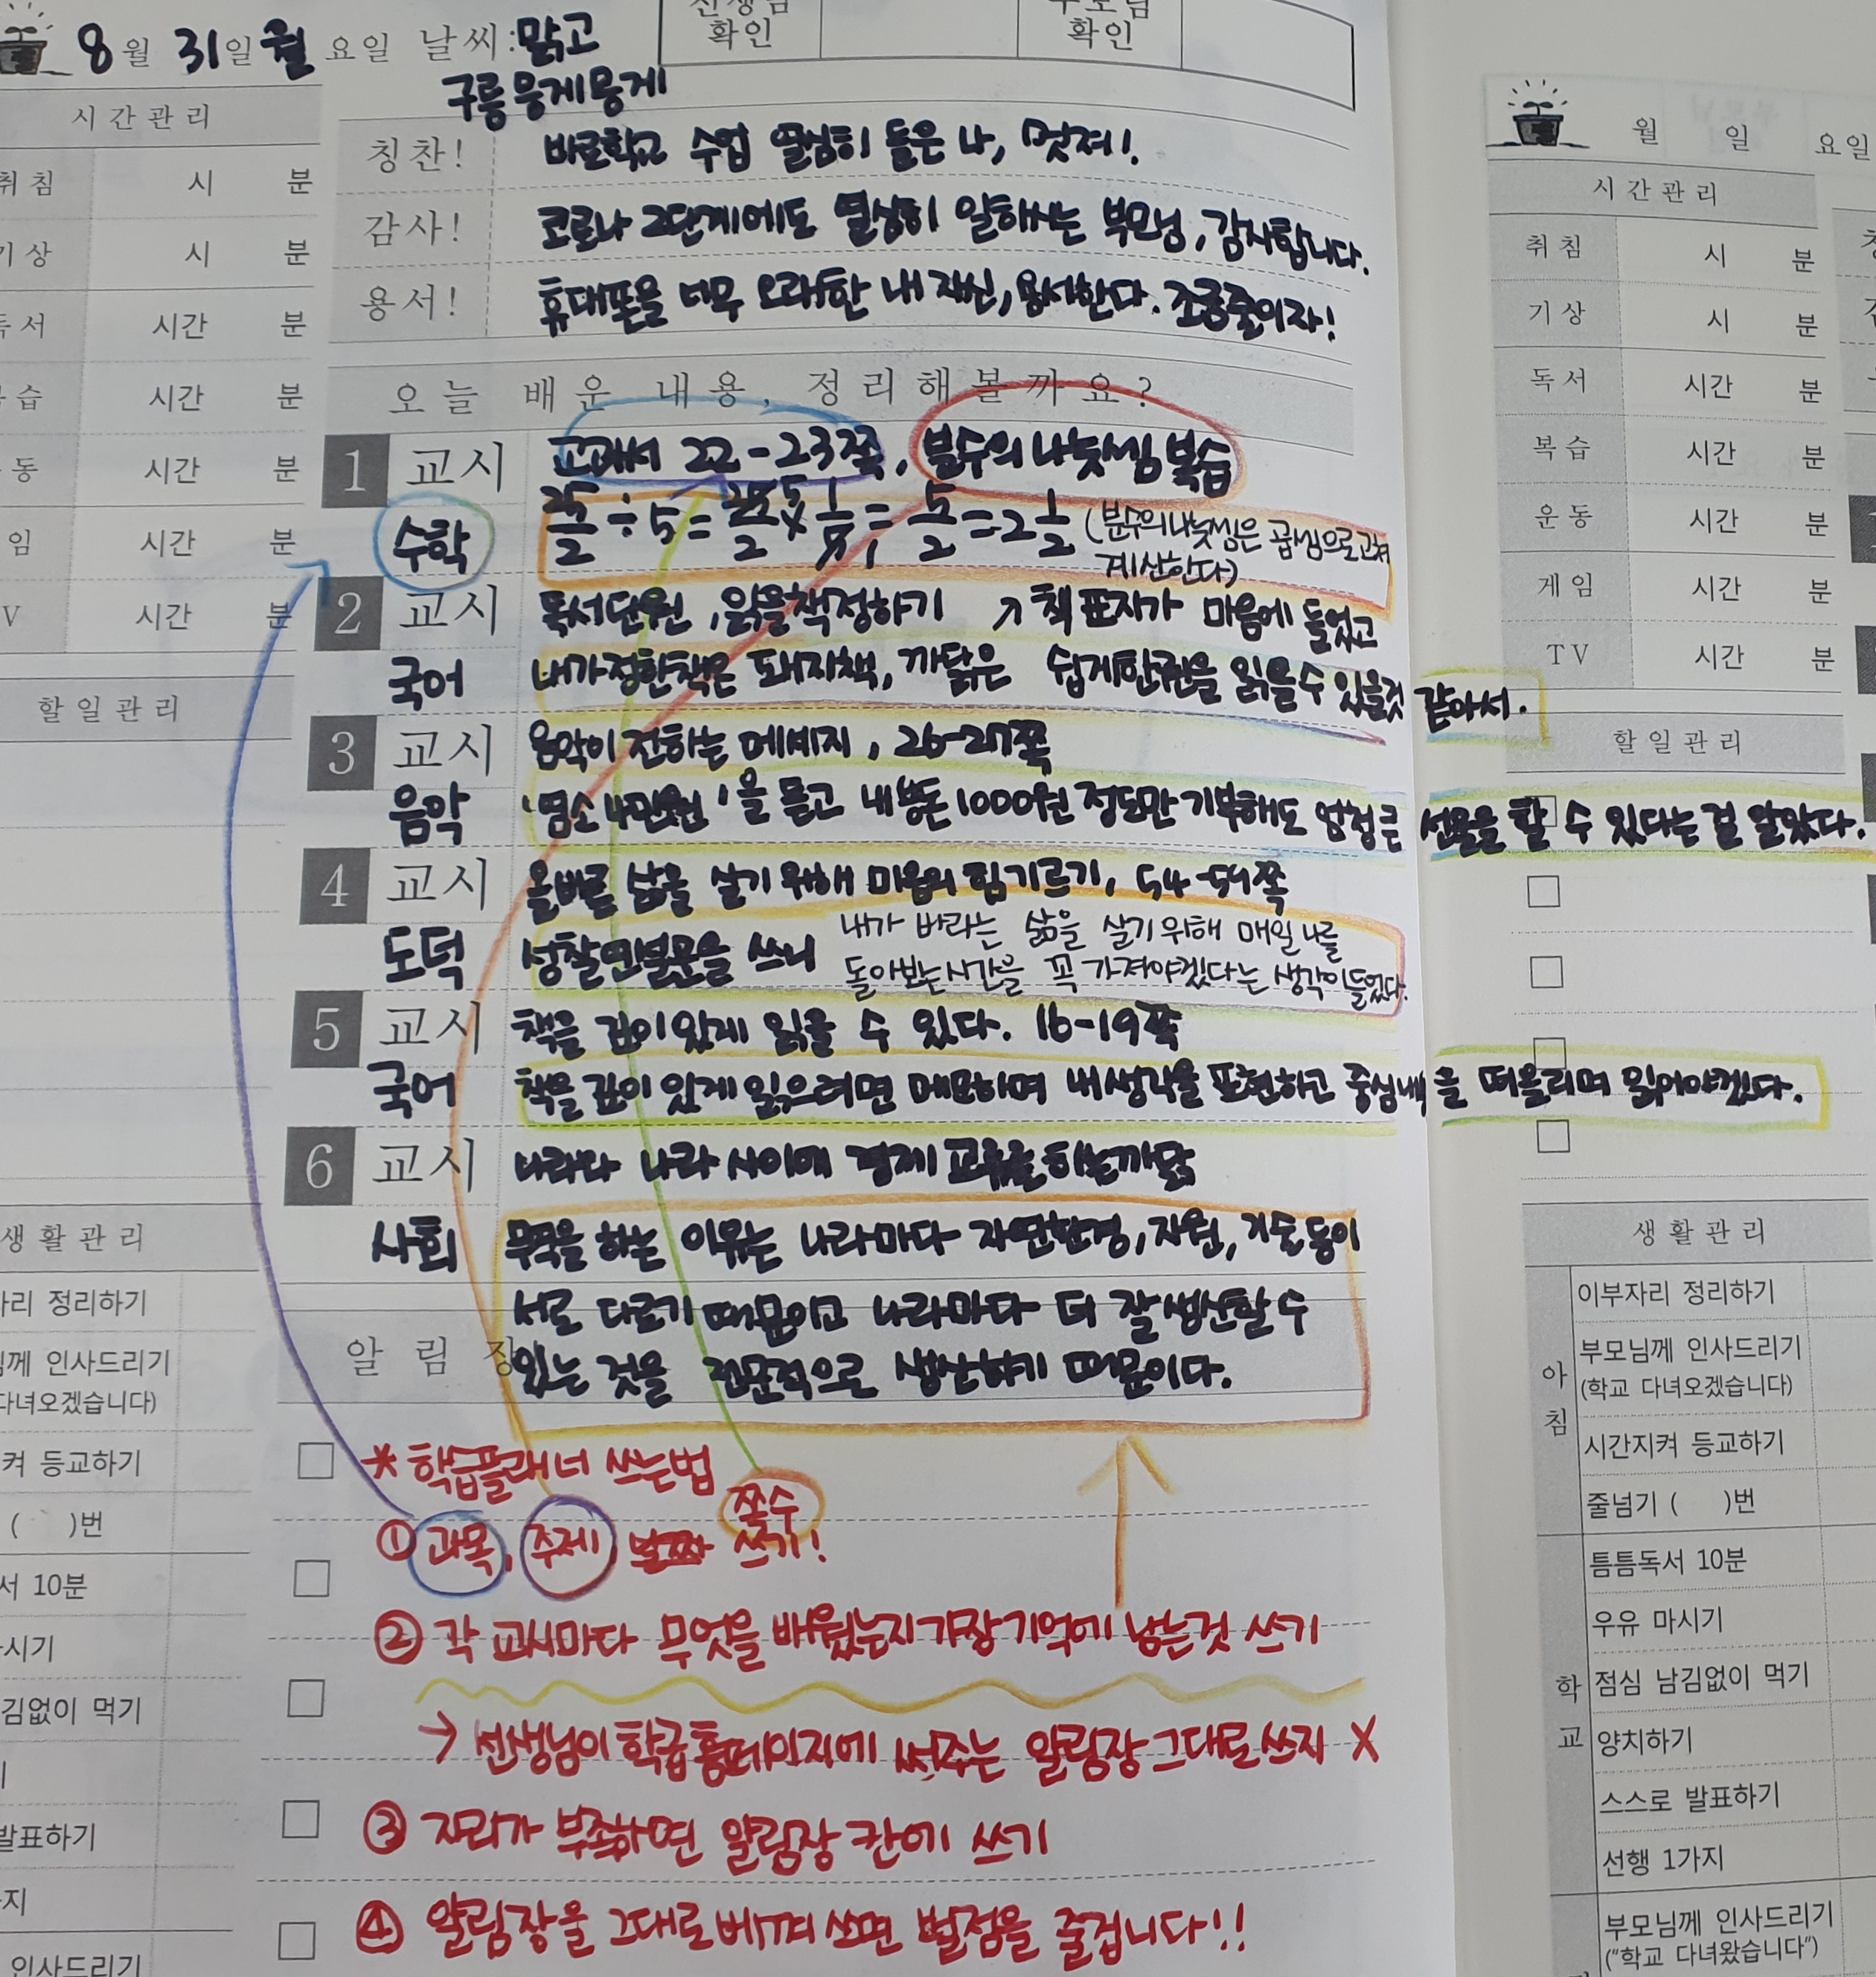 8월 31일 월요일 날씨:맑고
구름 뭉게뭉게
확인
확인
시간관리
취침 시 분
기상 시 분
독서 시간 분
복습 시간 분
운동 시간 분
게임 시간 분
TV 시간 분
할일관리
생활관리
자리 정리하기
님께 인사드리기
다녀오겠습니다)
켜 등교하기
( )번
서 10분
시기
김없이 먹기
기
발표하기
지
인사드리기
칭찬! 바로학교 수업 열심히 들은 나, 멋져!
감사! 코로나 2단계에도 열심히 일하시는 부모님, 감사합니다.
용서! 휴대폰을 너무 오래한 내 자신, 용서한다. 조금줄이자!
오늘 배운 내용, 정리해볼까요?
1 교시 교과서 22-23쪽, 분수의 나눗셈 복습
수학 25/2 ÷ 5 = 25/2 5 × 1/5 1 = 5/2 = 2 1/2 (분수의 나눗셈은 곱셈으로 고쳐
계산한다)
2 교시 독서단원, 읽을책정하기 ↗ 책 표지가 마음에 들었고
국어 내가정한책은 돼지책, 까닭은 쉽게한권을 읽을수 있을것 같아서.
3 교시 음악이 전하는 메세지, 26-27쪽
음악 '염소 4만원'을 듣고 내 용돈 1000원 정도만 기부해도 엄청큰 선물을 할 수 있다는 걸 알았다.
4 교시 올바른 삶을 살기 위해 마음의 힘기르기, 54-55쪽
도덕 성찰일불문을 쓰니 내가 바라는 삶을 살기 위해 매일 나를
돌아보는시간을 꼭 가져야겠다는 생각이들었다.
5 교시 책을 깊이있게 읽을 수 있다. 16-19쪽
국어 책을 깊이 있게 읽으려면 메모하며 내생각을 표현하고 중심내용을 떠올리며 읽어야겠다.
6 교시 나라와 나라 사이에 경제 교류를 하는까닭
사회 무역을 하는 이유는 나라마다 자연환경, 자원, 기술 등이
서로 다르기 때문이고 나라마다 더 잘 생산할 수
알림장 있는 것을 전문적으로 생산하기 때문이다.
* 학급플래너 쓰는법
쪽수
① 과목, 주제 쓰기!
② 각 교시마다 무엇을 배웠는지 가장 기억에 남는것 쓰기
→ 선생님이 학급홈페이지에 써주는 알림장 그대로쓰지 X
③ 자리가 부족하면 알림장 칸에 쓰기
④ 알림장을 그대로 베껴 쓰면 벌점을 줄겁니다!!
월 일 요일
시간관리
취침 시 분
기상 시 분
독서 시간 분
복습 시간 분
운동 시간 분
게임 시간 분
TV 시간 분
할일관리
생활관리
아침
이부자리 정리하기
부모님께 인사드리기
(학교 다녀오겠습니다)
시간지켜 등교하기
줄넘기 ( )번
학교
틈틈독서 10분
우유 마시기
점심 남김없이 먹기
양치하기
스스로 발표하기
선행 1가지
부모님께 인사드리기
("학교 다녀왔습니다")